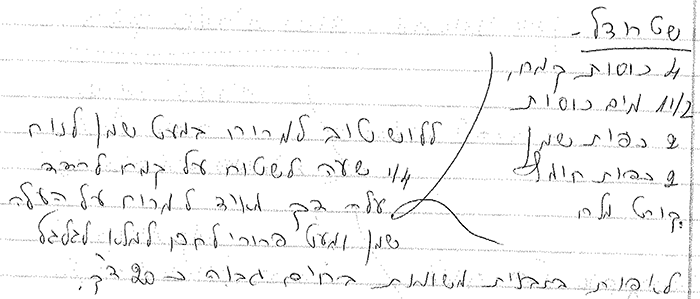 שטרודל -
4 כוסות קמח,
1 1/2 מים כוסות
2 כפות שמן
2 כפות חומץ
קורט מלח
ללוש טוב למרוח במעט שמן לנוח
1/4 שעה לשטוח על קמח לרדד
עלה דק מאוד למרוח על העלה
שמן ומעט פרורי לחם למלא לגלגל
לאפות בתבנית משומנת בחום גבוה כ 20 דק'.